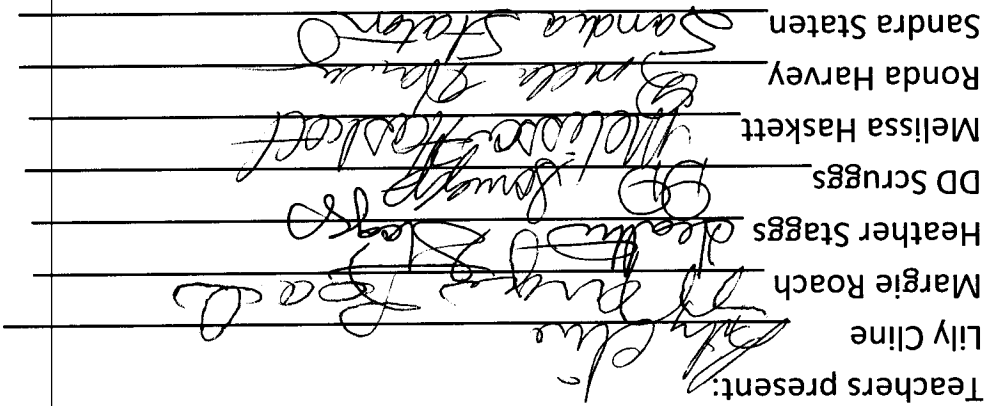 Teachers present:
Lily Cline Lily Cline
Margie Roach Margie Roach
Heather Staggs Heather Staggs
DD Scruggs DD Scruggs
Melissa Haskett Melissa Haskett
Ronda Harvey Harvey
Sandra Staten Sandra Staten